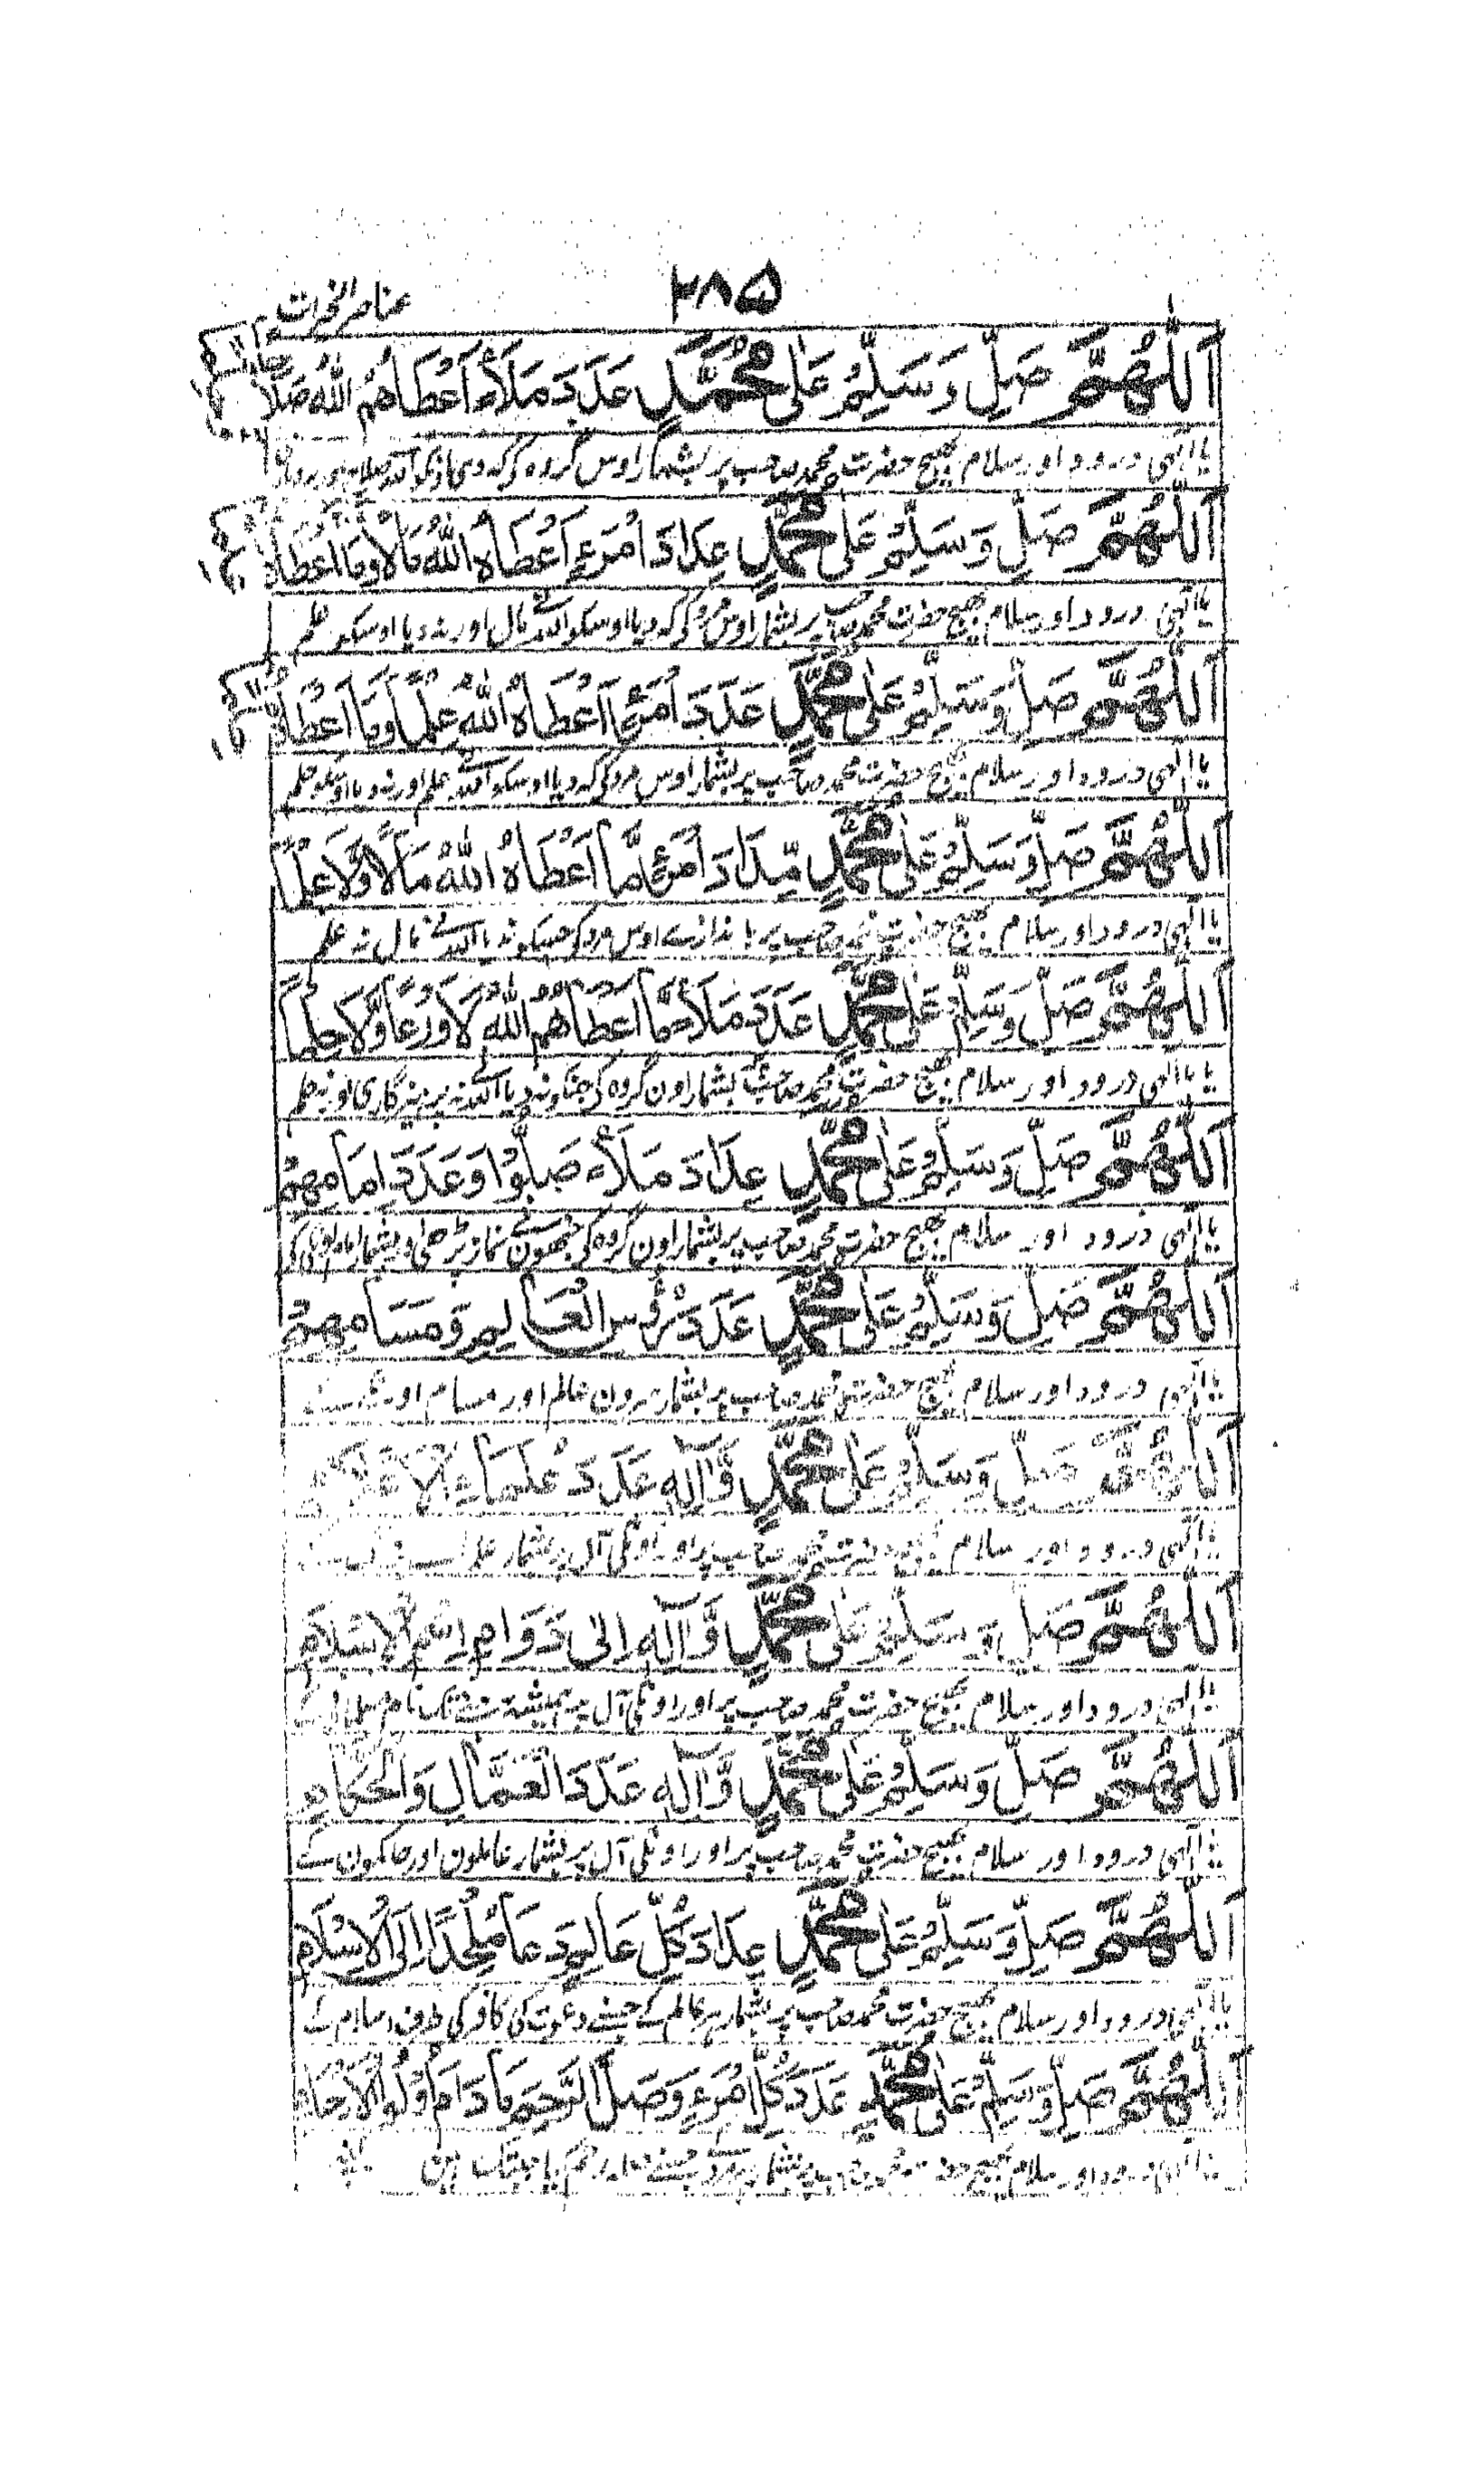 ۲۸۵
عناصر الخيرات
اَللّٰهُمَّ صَلِّ وَسَلِّمْ عَلٰى مُحَمَّدٍ عَدَدَ مَلَأٍ اَعْطَاهُمُ اللّٰهُ صَلَاحًا
یا الٰہی درود اور سلام بھیج حضرت محمد صاحب پر بشمار اوس گروہ کو کہ دی
اَللّٰهُمَّ صَلِّ وَسَلِّمْ عَلٰى مُحَمَّدٍ عِدَادَ امْرَءٍ اَعْطَاهُ اللّٰهُ مَالًا وَمَا اَعْطَاهُ
یا الٰہی درود اور سلام بھیج حضرت محمد صاحب پر بشمار اوس مرد کو کہ دیا اوسکو اللہ نے مال اور نہ دیا اوسکو علم
اَللّٰهُمَّ صَلِّ وَسَلِّمْ عَلٰى مُحَمَّدٍ عَدَدَ امْرَءٍ اَعْطَاهُ اللّٰهُ عِلْمًا وَمَا اَعْطَاهُ
یا الٰہی درود اور سلام بھیج حضرت محمد صاحب پر بشمار اوس مرد کی کہ دیا اوسکو اللہ نے علم اور نہ دیا اوسکو حلم
اَللّٰهُمَّ صَلِّ وَسَلِّمْ عَلٰى مُحَمَّدٍ مِدَادَ امْرَءٍ مَّا اَعْطَاهُ اللّٰهُ مَالًا وَّلَا عِلْمًا
یا الٰہی درود اور سلام بھیج حضرت محمد صاحب پر باندازے اوس مرد کو جسکو نہ دیا اللہ نے مال نہ علم
اَللّٰهُمَّ صَلِّ وَسَلِّمْ عَلٰى مُحَمَّدٍ عَدَدَ مَلَأٍ مَّا اَعْطَاهُمُ اللّٰهُ لَا وَرَعًا وَّلَا حِلْمًا
یا الٰہی درود اور سلام بھیج حضرت محمد صاحب بشمار اون گروہ کی جنکو نہ دیا اللہ نے پرہیزگاری اور نہ حلم
اَللّٰهُمَّ صَلِّ وَسَلِّمْ عَلٰى مُحَمَّدٍ عِدَادَ مَلَأٍ صَلُّوْا وَعَدَدَ اِمَامِهِمْ
یا الٰہی درود اور سلام بھیج حضرت محمد صاحب پر بشمار اون گروہ کی جنھون نے نماز پڑھی اور بشمار امام اونکی کی
اَللّٰهُمَّ صَلِّ وَسَلِّمْ عَلٰى مُحَمَّدٍ عَدَدَ رُؤُسِ الْعَالَمِ وَمَسَامِهِمْ
یا الٰہی درود اور سلام بھیج حضرت محمد صاحب پر بشمار سرون عالم اور مسام
اَللّٰهُمَّ صَلِّ وَسَلِّمْ عَلٰى مُحَمَّدٍ وَّاٰلِهِ عَدَدَ عُلَمَاءِ
یا الٰہی درود اور سلام بھیج حضرت محمد صاحب پر اور اونکی آل پر بشمار
اَللّٰهُمَّ صَلِّ وَسَلِّمْ عَلٰى مُحَمَّدٍ وَّاٰلِهِ اِلٰى دَوَامِ اسْمِ الْاِسْلَامِ
یا الٰہی درود اور سلام بھیج حضرت محمد صاحب پر اور اونکی آل پر ہمیشہ رہنے تک نام
اَللّٰهُمَّ صَلِّ وَسَلِّمْ عَلٰى مُحَمَّدٍ وَّاٰلِهِ عَدَدَ الْعُمَّالِ وَالْحُكَّامِ
یا الٰہی درود اور سلام بھیج حضرت محمد صاحب پر اور اونکی آل پر بشمار عاملون اور حاکمون کے
اَللّٰهُمَّ صَلِّ وَسَلِّمْ عَلٰى مُحَمَّدٍ عِدَادَ كُلِّ عَالِمٍ دَعَا مُلْحِدًا اِلَى الْاِسْلَامِ
یا الٰہی درود اور سلام بھیج حضرت محمد صاحب پر بشمار ہر عالم کے جسنے دعوت کی کافر کی طرف اسلام کے
اَللّٰهُمَّ صَلِّ وَسَلِّمْ عَلٰى مُحَمَّدٍ عَدَدَ كُلِّ امْرَءٍ وَصَلَ الرَّحِمَ مَا دَامَ اُولُوا الْاَرْحَامِ
یا الٰہی درود اور سلام بھیج پر بشمار ہر مرد جسنے صلہ رحم کیا جبتک ہین